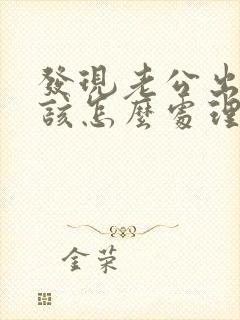 發現老公出
該怎麼處理
金荣